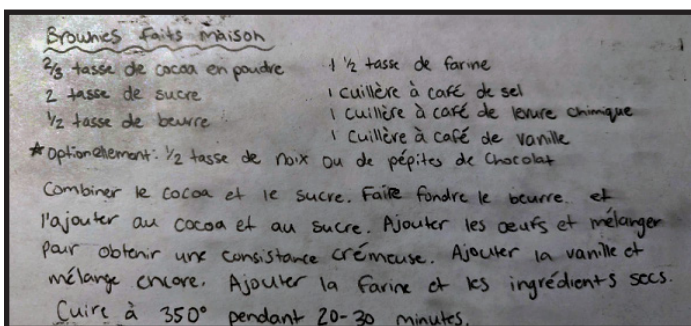 Brownies faits maison
2/3 tasse de cocoa en poudre
2 tasse de sucre
1/2 tasse de beurre
1 1/2 tasse de farine
1 cuillère à café de sel
1 cuillère à café de levure chimique
1 cuillère à café de vanille
* Optionellement: 1/2 tasse de noix ou de pépites de chocolat
Combiner le cocoa et le sucre. Faire fondre le beurre. et
l'ajouter au cocoa et au sucre. Ajouter les oeufs et mélanger
pour obtenir une consistance crémeuse. Ajouter la vanille et
mélange encore. Ajouter la farine et les ingrédients secs.
Cuire à 350° pendant 20-30 minutes.